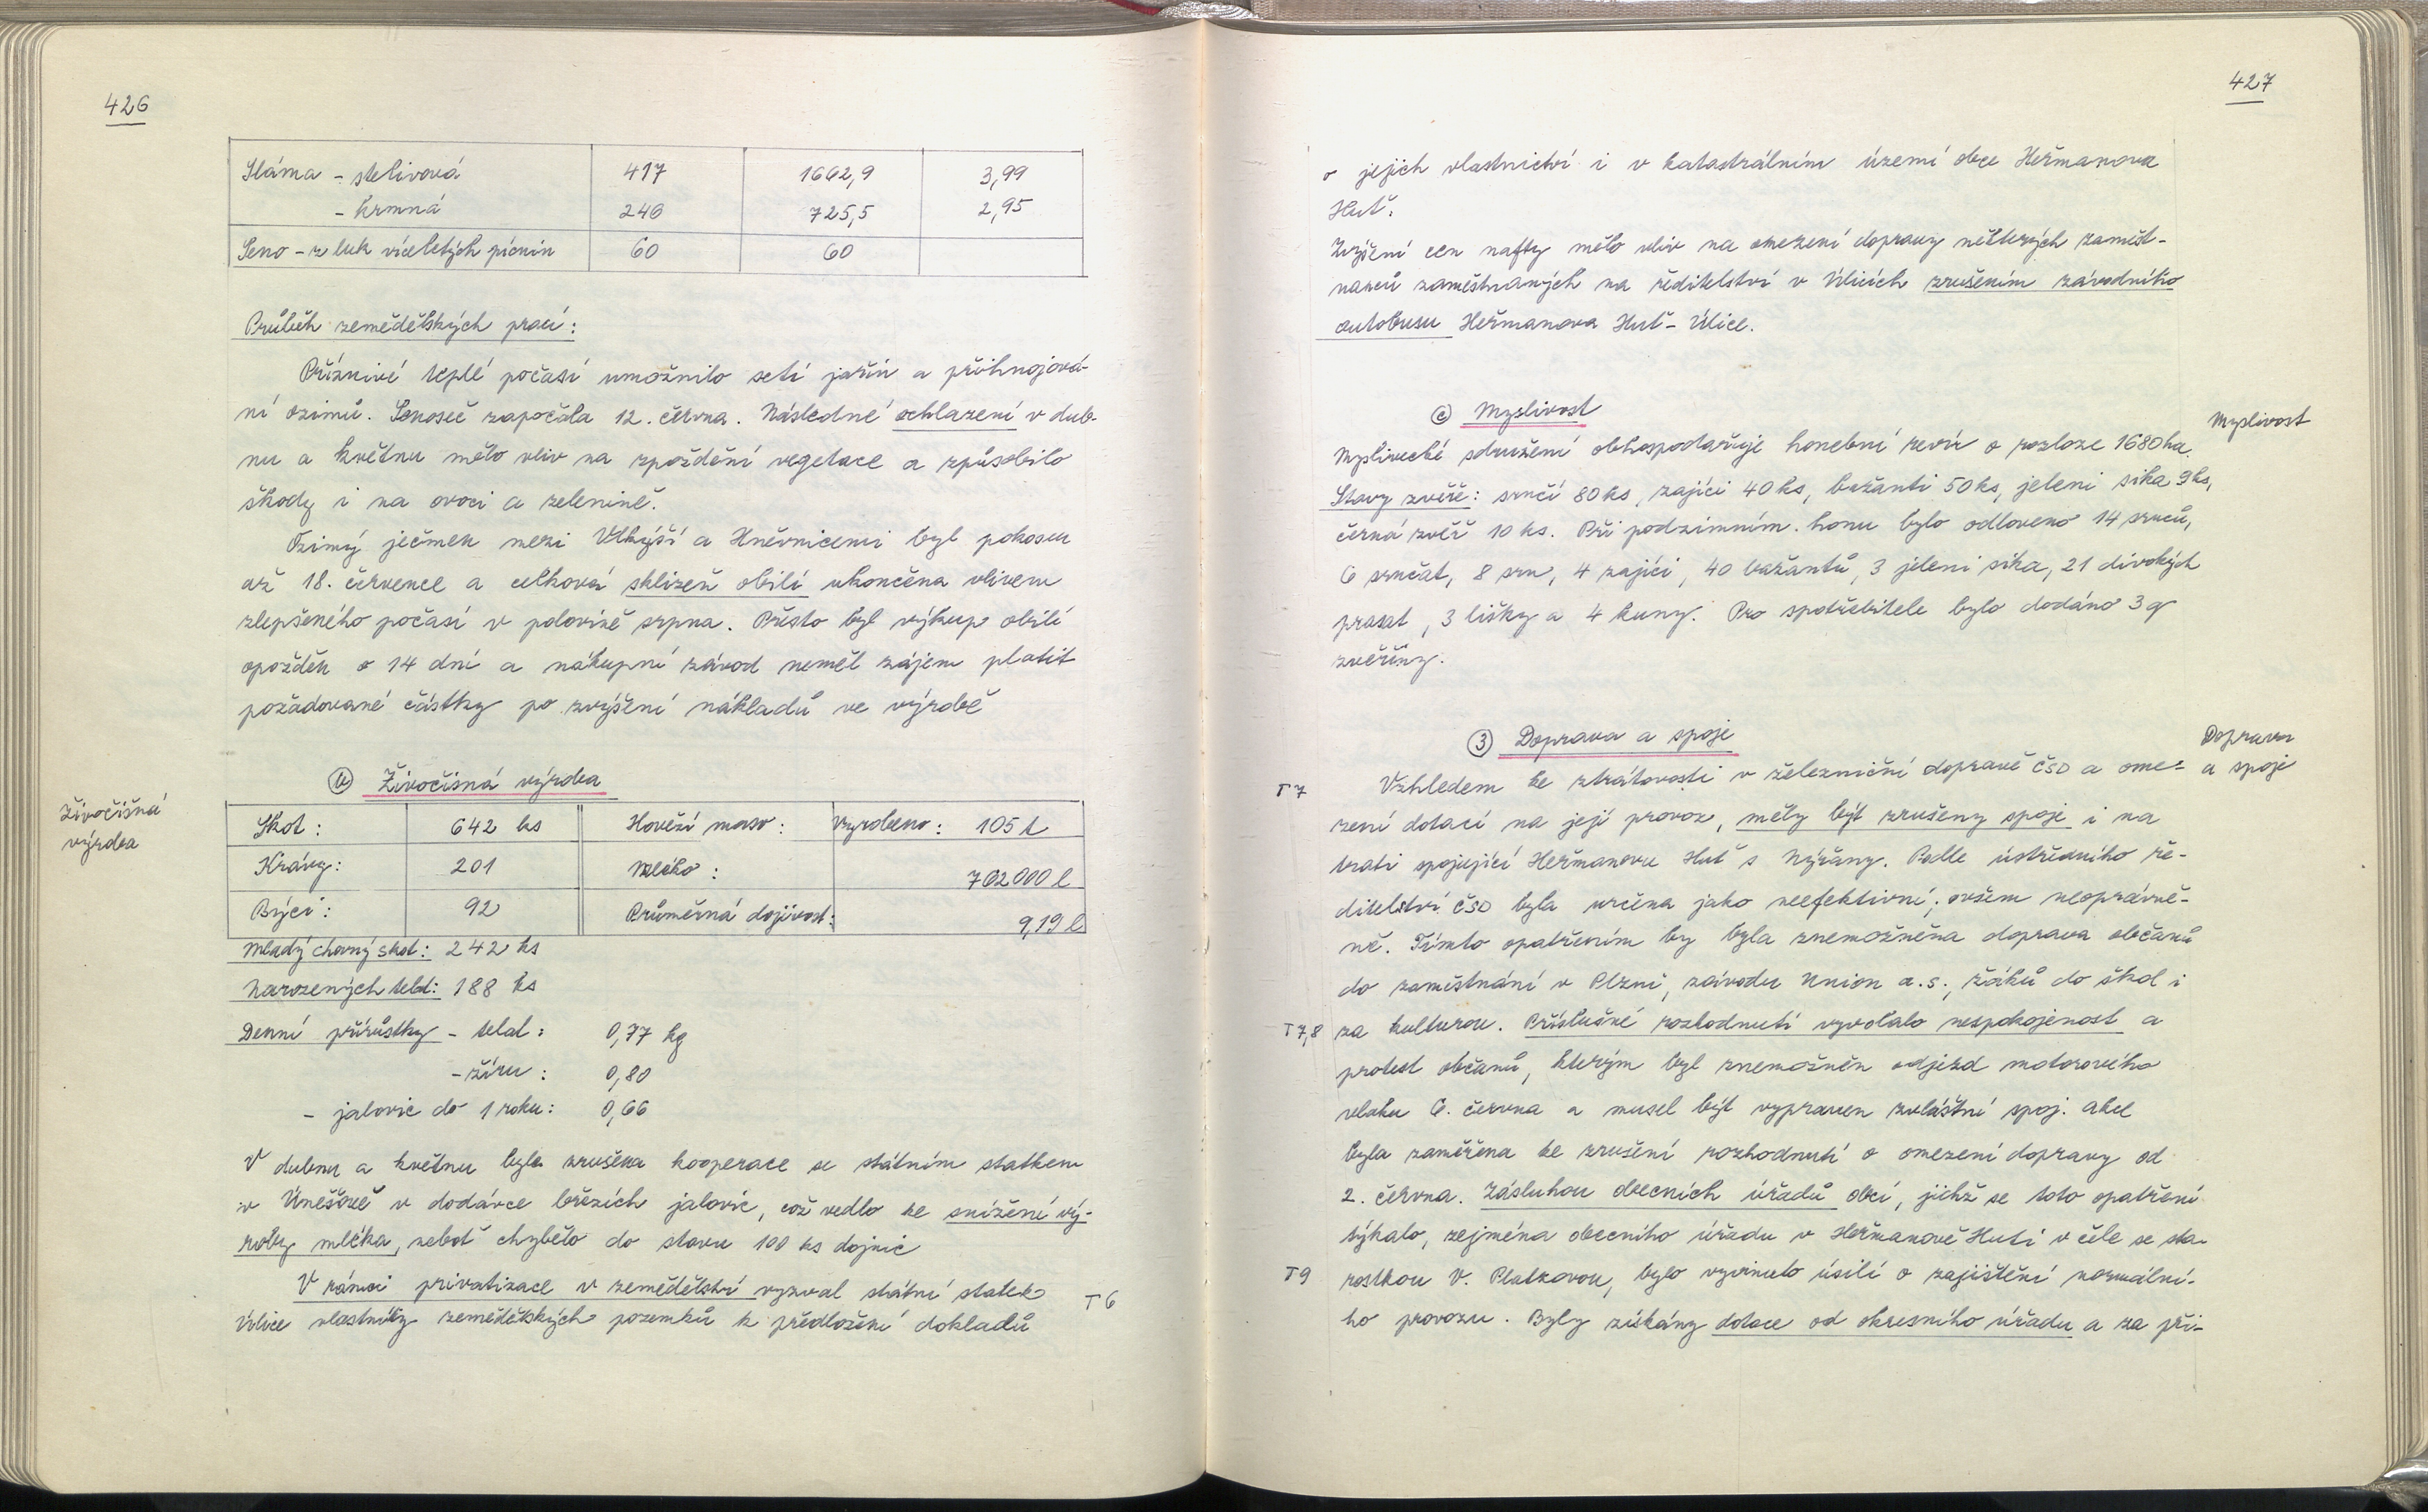 426
Sláma - stelivová 417 1662,9 3,99
- krmná 246 725,5 2,95
Seno - z luk víceletých pícnin 60 60
Průběh zemědělských prací:
Příznivé teplé počasí umožnilo setí jařin a přihnojová-
ní ozimů. Senoseč započala 12. června. Následné ochlazení v dub-
nu a květnu mělo vliv na zpoždění vegetace a způsobilo
škody i na ovoci a zelenině.
Ozimý ječmen mezi Vlkýší a Hněvnicemi byl pokosen
až 18. července a celková sklizeň obilí ukončena vlivem
zlepšeného počasí v polovině srpna. Přesto byl výkup obilí
opožděn o 14 dní a nákupní závod neměl zájem platit
požadované částky po zvýšení nákladů ve výrobě
b Živočišná výroba
Živočišná
výroba
Skot: 642 ks Hovězí maso: Vyrobeno: 105 t
Krávy: 201 Mléko: 762000 l
Býci: 92 Průměrná dojivost: 9,19 l
Mladý chovný skot: 242 ks
Narozených telat: 188 ks
Denní přírůstky - telat: 0,77 kg
- žíru: 0,80
- jalovic do 1 roku: 0,66
V dubnu a květnu byla zrušena kooperace se státním statkem
v Úněšově v dodávce březích jalovic, což vedlo ke snížení vý-
roby mléka, neboť chybělo do stavu 100 ks dojnic
V rámci privatizace v zemědělství vyzval státní statek
Úlice vlastníky zemědělských pozemků k předložení dokladů
T6
427
o jejich vlastnictví i v katastrálním území obce Heřmanova
Huť.
Zvýšení cen nafty mělo vliv na omezení dopravy některých zaměst-
nanců zaměstnaných na ředitelství v Úlicích zrušením závodního
autobusu Heřmanova Huť - Úlice.
c Myslivost
Myslivost
Myslivecké sdružení obhospodařuje honební revír o rozloze 1680 ha.
Stavy zvěře: srnčí 80 ks, zajíci 40 ks, bažanti 50 ks, jeleni sika 9 ks,
černá zvěř 10 ks. Při podzimním honu bylo odloveno 14 srnců,
6 srnčat, 8 srn, 4 zajíci, 40 bažantů, 3 jeleni sika, 21 divokých
prasat, 3 lišky a 4 kuny. Pro spotřebitele bylo dodáno 3 q
zvěřiny.
3 Doprava a spoje
Doprava
a spoje
T7 Vzhledem ke ztrátovosti v železniční dopravě ČSD a ome-
zení dotací na její provoz, měly být zrušeny spoje i na
trati spojující Heřmanovu Huť s Nýřany. Podle ústředního ře-
ditelství ČSD byla určena jako neefektivní; ovšem neoprávně-
ně. Tímto opatřením by byla znemožněna doprava občanů
do zaměstnání v Plzni, závodu Union a.s., žáků do škol i
T7,8 za kulturou. Příslušné rozhodnutí vyvolalo nespokojenost a
protest občanů, kterým byl znemožněn odjezd motorového
vlaku 6. června a musel být vypraven zvláštní spoj. Akce
byla zaměřena ke zrušení rozhodnutí o omezení dopravy od
2. června. Zásluhou obecních úřadů obcí, jichž se toto opatření
týkalo, zejména obecního úřadu v Heřmanově Huti v čele se sta-
T9 rostkou V. Platzovou, bylo vyvinuto úsilí o zajištění normální-
ho provozu. Byly získány dotace od okresního úřadu a za při-